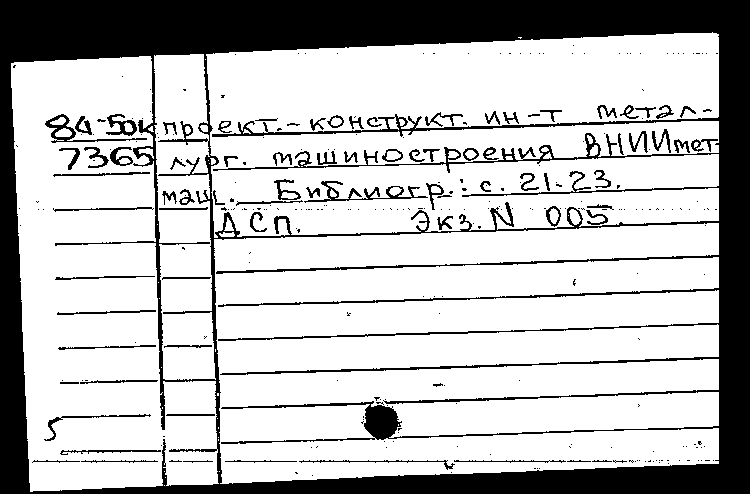 84-50к проект.- конструкт. ин-т метал-
7365 лург. машиностроения ВНИИмет-
маш. Библиогр.: с. 21-23.
ДСП. Экз. N 005.
5